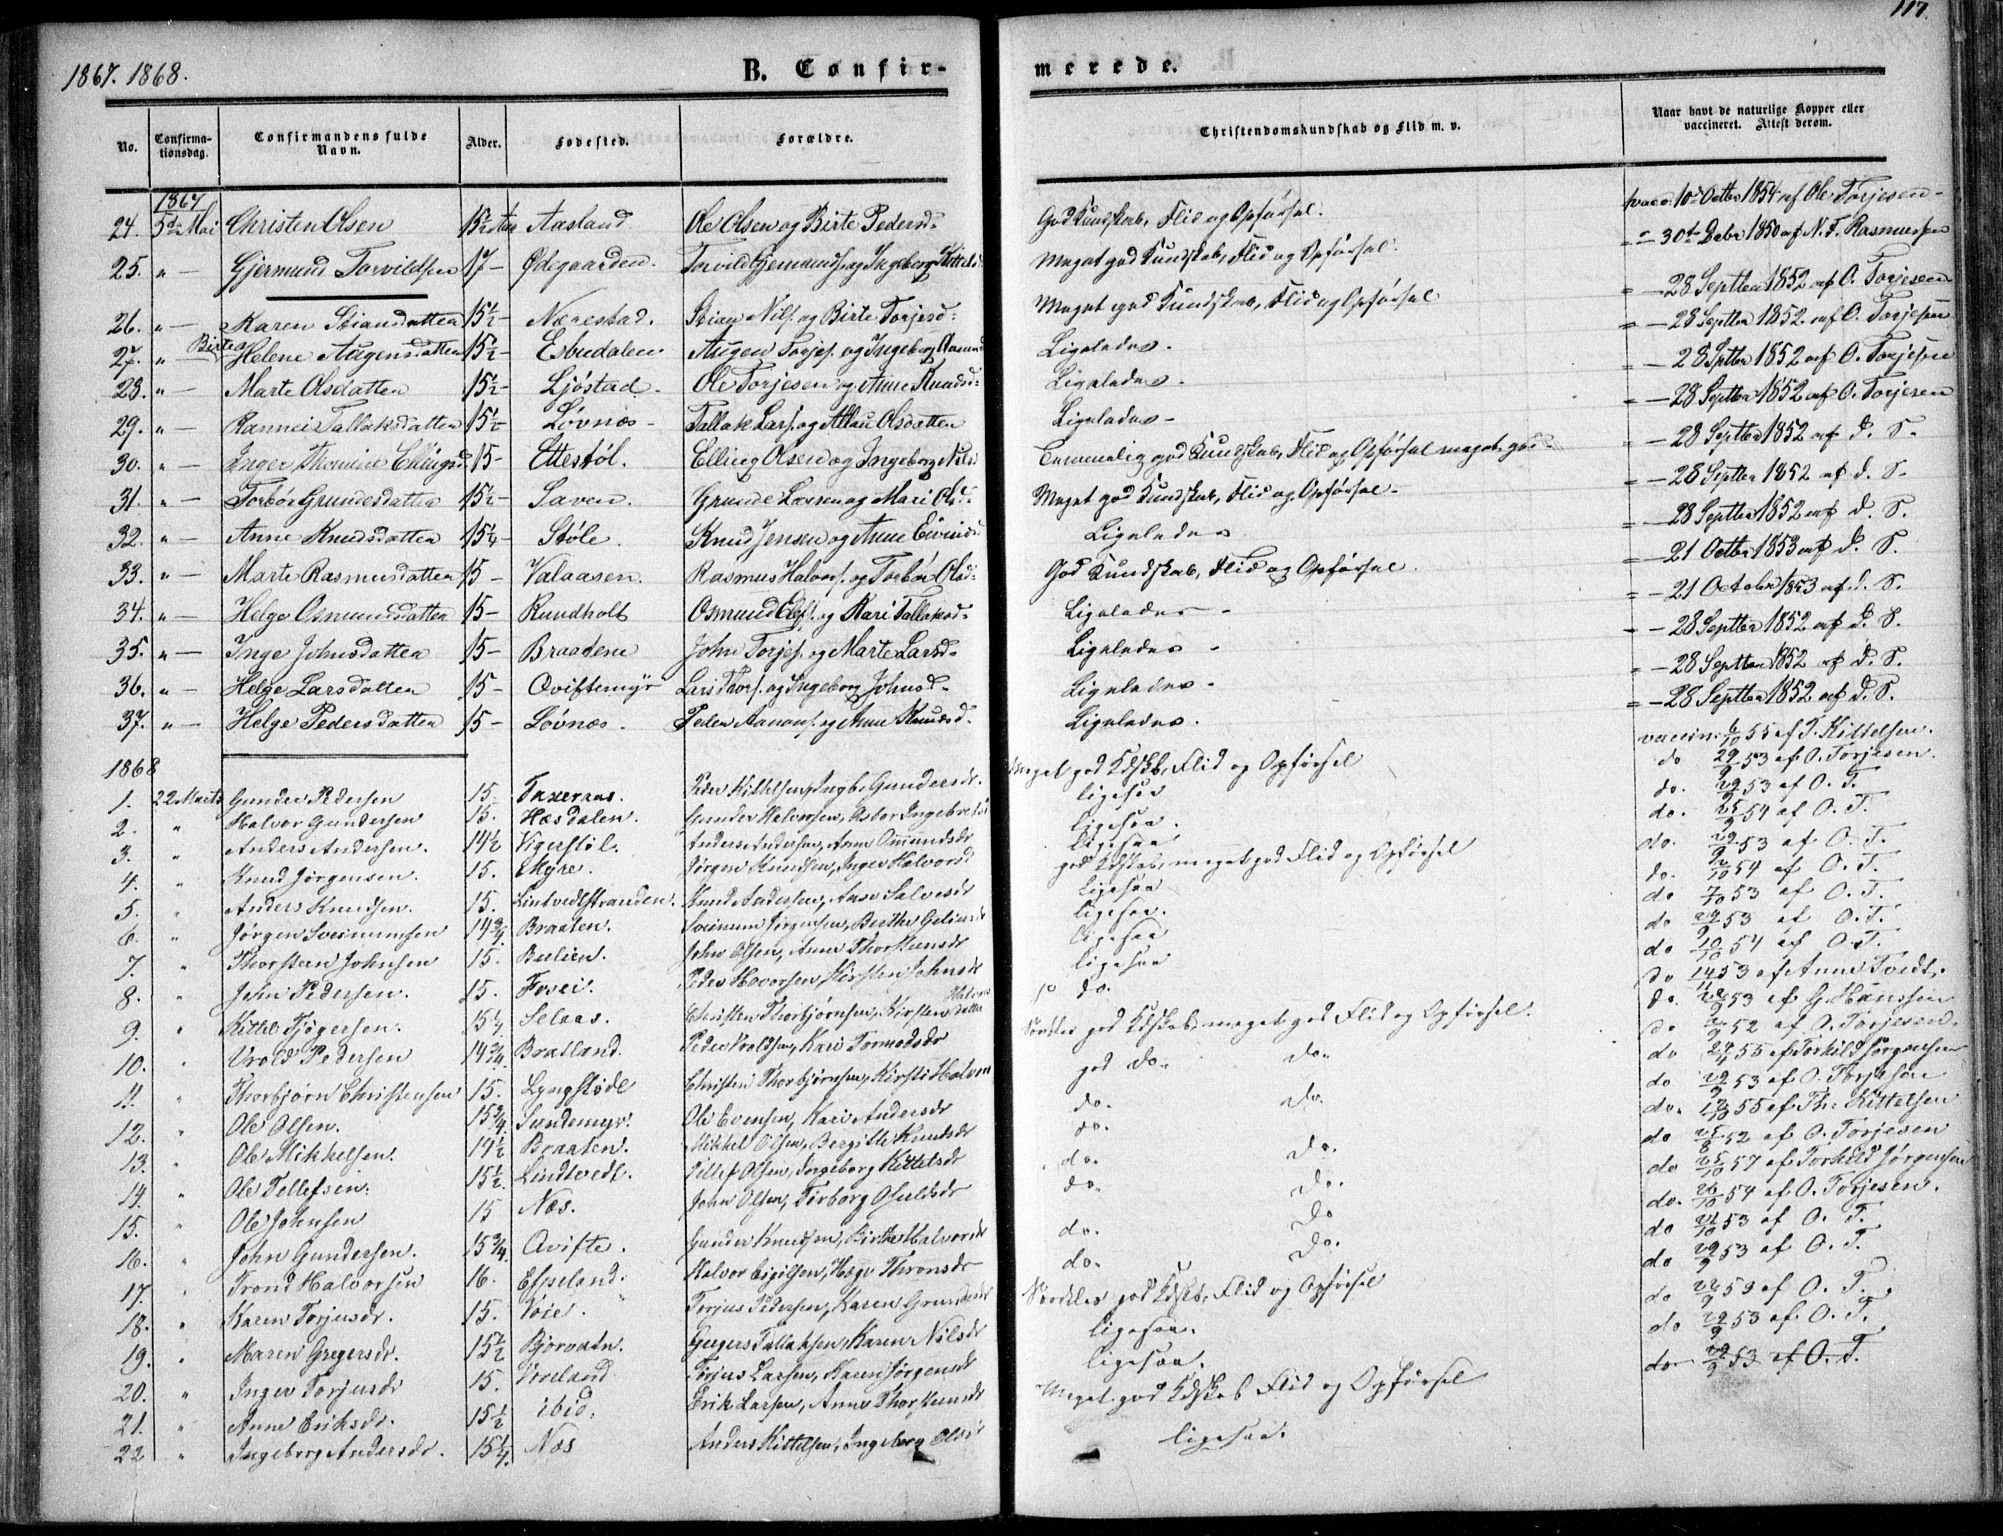 1867. 1868.
B. Confir-
merede.
117.
No.
Confirma-
tionsdag.
Confirmandens fulde
Navn.
Alder.
Fødested.
Forældre.
Christendomskundskab og Flid m. v.
Naar havt de naturlige Kopper eller
vaccineret. Attest derom.
1867
24. 5te Mai Christen Olsen 15½ Aar Aasland. Ole Olsen og Birte Pedersd. God Kundskab, Flid og Opførsel. vacc. 10de Octbr 1854 af Ole Torjesen
25. " — Gjermund Torvildsen 17 - Ødegaarden. Torvild Gjermunds. og Ingeborg Kittelsd. Meget god Kundskab, Flid og Opførsel. = - 30te Debr 1850 af N. F. Rasmussen
26. " — Karen Stiansdatter 15½ - Nærestad. Stian Nils. og Birte Torjesd. Meget god Kundskab, Flid og Opførsel = - 28 Septbr 1852 af O. Torjesen
27. " — Birte Helene Augensdatter 15½ - Esbudalen Augen Torjes. og Ingeborg Aamunds Ligeledes. = - 28 Septbr 1852 af O. Torjesen
28. " — Marte Olsdatter 15½ - Ljøstad. Ole Torjesen og Anne Knudsd. Ligeledes. = - 28 Septbr 1852 af O. Torjesen
29. " — Rannei Tallaksdatter 15½ - Løvnæs - Tallak Lars. og Olsdatter Ligeledes - = - 28 Septbr 1852 af O. Torjesen
30. " — Inger Thomine Ellingsd 15 - Ettestøl. Elling Olsen og Ingeborg Nilsd Temmelig god Kundskab, Flid og Opførsel meget god = - 28 Septbr 1852 af d. S.
31. " — Torbør Grundesdatter 15½ - Saven. Grunde Larsen og Mari Olsd. Meget god Kundskab, Flid og Opførsel. = - 28 Septbr 1852 af d. S.
32. " — Anne Knudsdatter 15¼ - Støle. Knud Jensen og Anne Eivinds. Ligeledes = - 28 Septbr 1852 af d. S.
33. " — Marte Rasmusdatter 15 - Valaasen. Rasmus Halvors. og Torbør Olsd. God Kundskab, Flid og Opførsel. = - 21 Octbr 1853 af d. S.
34. " — Helge Osmundsdatter 15 - Rundholt Osmund Olefs. og Kari Tallaksd. Ligeledes - = - 21 October 1853 af d. S.
35. " — Inge Johnsdatter 15 - Braadene John Torjes. og Marte Larsd. Ligeledes - = - 28 Septbr 1852 af d. S.
36. " — Helge Larsdatter 15 - Qviftemyr Lars Thors. og Ingeborg Johnsd. Ligeledes. = - 28 Septbr 1852 af d. S.
37. " — Helge Pedersdatter 15 - Løvnæs. Peder Aanons. og Anne Knudsd. Ligeledes. = - 28 Septbr 1852 af d. S.
1868
1. 22 Marts Gunder Pedersen 15. Taxeraas. Peder Kittelsen, Ingbr Gundersdr. Meget god Kdskb, Flid og Opførsel vaccin. 6/10 55 af T. Kittelsen.
2. " Halvor Gundersen 15. Hæsdalen. Gunder Halvorsen, Asbor Ingebretsd ligesaa do 29/9 53 af O. Torjesen.
3. " Anders Andersen. 14½ Vigerstøl. Anders Andersen, Anne Omundsdr ligesaa. do. 29/9 53 af O. T.
4. " Knud Jørgensen. 15. Myre. Jørgen Knudsen, Inger Halvorsd ligesaa do. 25/9 54 af O. T.
5. " Anders Knudsen. 15. Lintvedtstranden. Knud Andersen, Anne Salvesdr god Kdskab, meget god Flid og Opførsel do. 29/9 53 af O. T.
6. " Jørgen Sveinumsen 14¾ Braaten. Sveinum Jørgensen, Berthe Gelinsdr ligesaa do. 54 af O. T.
7. " Thorsten Johnsen 15. Bulien. John Olsen, Anne Thorstensdr ligesaa. do 7/10 53 af O. T.
8. " John Pedersen. 15. Fosei. Peder Hovorsen, Kirsten Johnsdr ligesaa do 29/9 53 af O. T.
9. " Kittel Tjøgersen. 15¼ Selaas. Christen Thorbjørnsen, Kirsten Halvorsdatter ligesaa do 10/10 54 af O. T.
10. " Vrold Pedersen 14¾ Bratland. Peder Vroldsen, Kari Tormodsdr do. do 14/11 53 af Anne Tvedt.
11. " Thorbjørn Christensen 15. Lyngstødl Christen Thorbjørnsen, Kirsti Halvors Særdeles god Kdskab, meget god Flid og Opførsel. do. 29/9 53 af G. Hanssen
12. " Ole Olsen. 15¾ Sundemyr. Ole Evensen, Kari Andersdr god do. do. do 52 af O. Torjesen.
13. " Ole Mikkelsen. 14½ Braaten. Mikkel Olsen, Bergitte Knudsdr do. do. do 55 af Torkild Jørgensen
14. " Ole Tellefsen. 15½ Lindtvedt. Tellef Olsen, Ingeborg Kittelsdr do. do 29/9 53 af O. Torjesen
15. " Ole Johnsen 15 Næs. John Olsen, Torborg Olsdr do. do. do. 55 af Th. Kittelsen
16. " John Gundersen. 15¾ Qvifte. Gunder Knudsen, Birthe Halvorsdr do. do. do 25/8 52 af O. Torjesen
17. " Trond Halvorsen 16. Espeland. Halvor Eigilsen, Hæge Thronsdr do. do do 25/10 57 af Torkild Jørgensen
18. " Karen Torjusdr. 15. Voie. Torjus Pedersen, Karen Grundesdr do. do. do. 54 af O. Torjesen.
19. " Maren Gregersdr. 15½ Bjorvatn. Gregers Tallaksen, Karen Nilsdr Særdeles god Kdskb, Flid og Opførsel do 53 af O. T.
20. " Inger Torjusdr 15. Torjus Larsen, Karen Jørgensdr ligesaa. do 29/9 53 af O. T.
21. " Anne Eriksdr. 15½ ibid. Erik Larsen, Anne Thorstensdr ligesaa. do 53 af O. T.
22 " Ingeborg Andersdr. 15¼. Næs Anders Kittelsen, Ingeborg Olsdr Meget god Kdskab Flid og Opførsel do 29/9 53 af O. T.
ligesaa. do 29/9 53 af O. T.